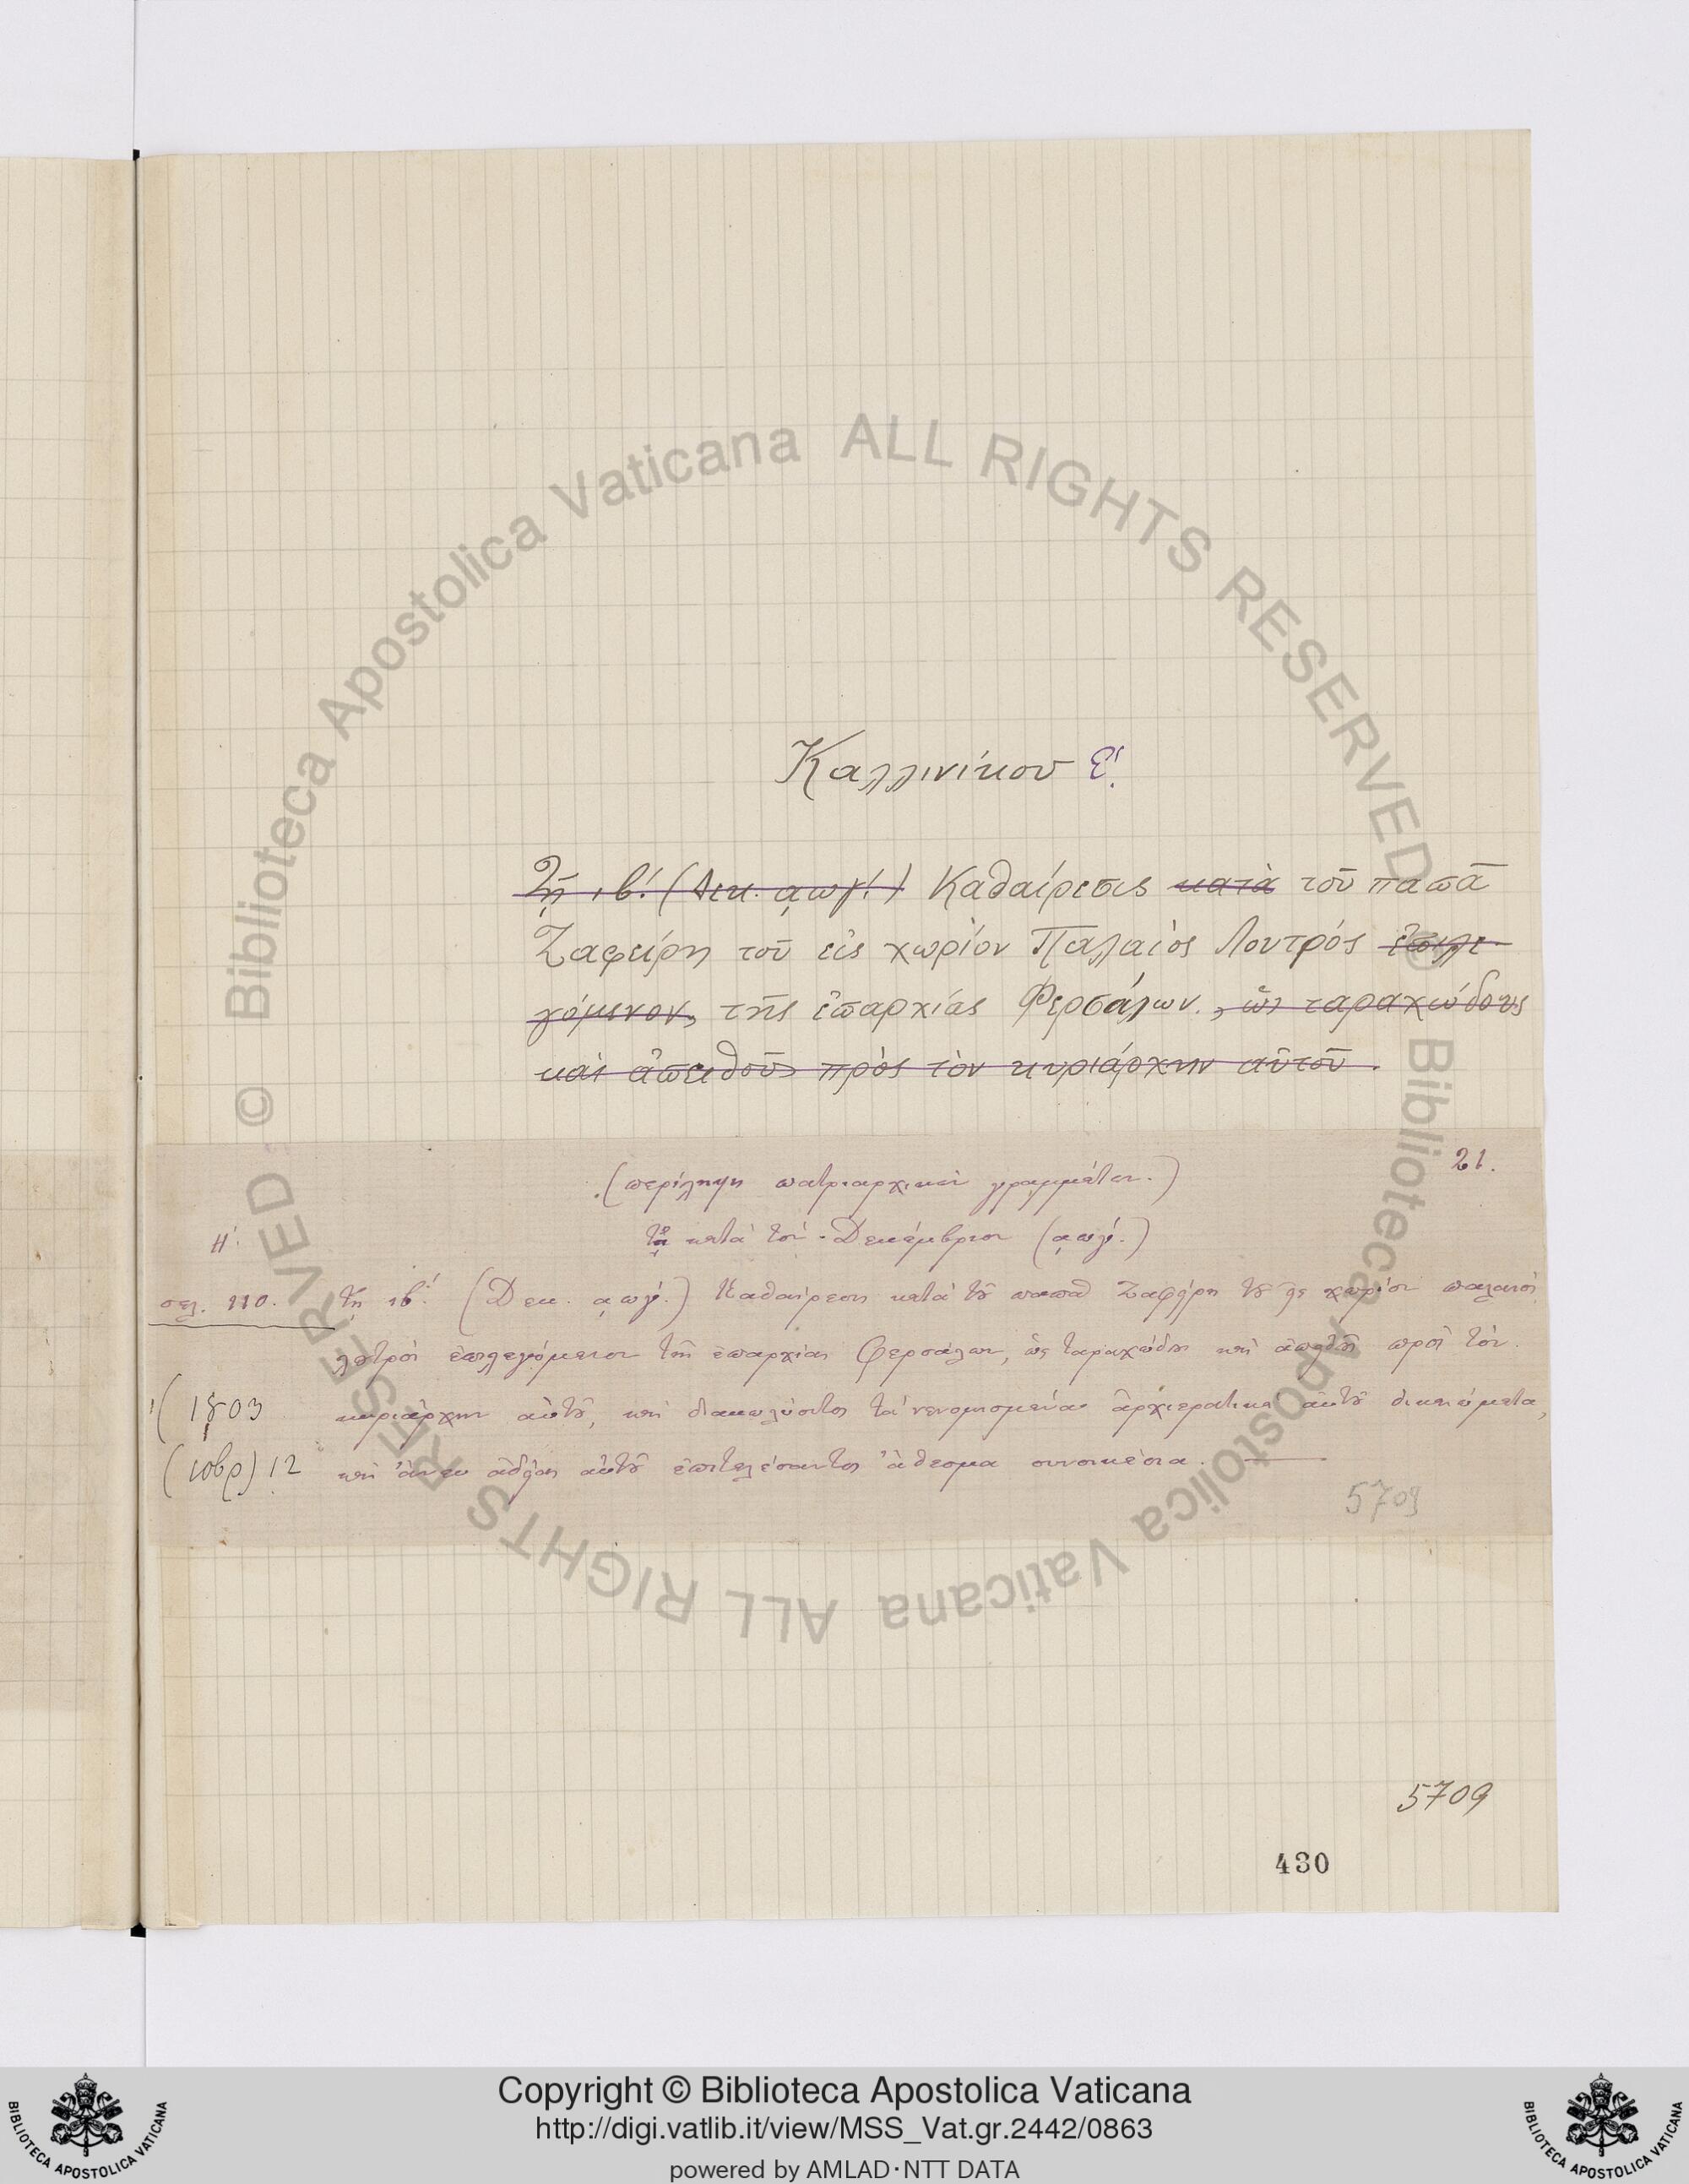 Καλλινίκου Ε΄.
Τῇ ιβ΄. (Δεκ. ͵αωγ΄.) Καθαίρεσις κατὰ τοῦ παπᾶ
Ζαφείρη τοῦ εἰς χωρίον Παλαιὸς Λουτρός ἐπιλε-
γόμενον, τῆς ἐπαρχίας Φερσάλων., ὡς ταραχώδους
καὶ ἀπειθοῦς πρὸς τὸν κυριάρχην αὐτοῦ.
21.
(περίληψη πατριαρχικῶν γραμμάτων.)
κατὰ τὸν Δεκέμβριον (͵αωγ΄.)
Η΄.
σελ. 110. τῇ ιβ΄. (Δεκ. ͵αωγ΄.) Καθαίρεσις κατὰ τοῦ παπᾶ Ζαφείρη τοῦ εἰς χωρίον παλαιὸς
λουτρὸς ἐπιλεγόμενον τῆς ἐπαρχίας Φερσάλων, ὡς ταραχώδους καὶ ἀπειθοῦς πρὸς τὸν
(1803 κυριάρχην αὐτοῦ, καὶ διακωλύοντος τὰ νενομισμένα ἀρχιερατικὰ αὐτοῦ δικαιώματα,
(10βρ) 12 καὶ ἄνευ ἀδείας αὐτοῦ ἐπιτελέσαντος ἄθεσμα συνοικέσια.
5709
5709
430
Biblioteca Apostolica Vaticana ALL RIGHTS RESERVED ©
Biblioteca Apostolica Vaticana ALL RIGHTS RESERVED ©
Copyright © Biblioteca Apostolica Vaticana
http://digi.vatlib.it/view/MSS_Vat.gr.2442/0863
powered by AMLAD·NTT DATA
BIBLIOTECA APOSTOLICA VATICANA
BIBLIOTECA APOSTOLICA VATICANA